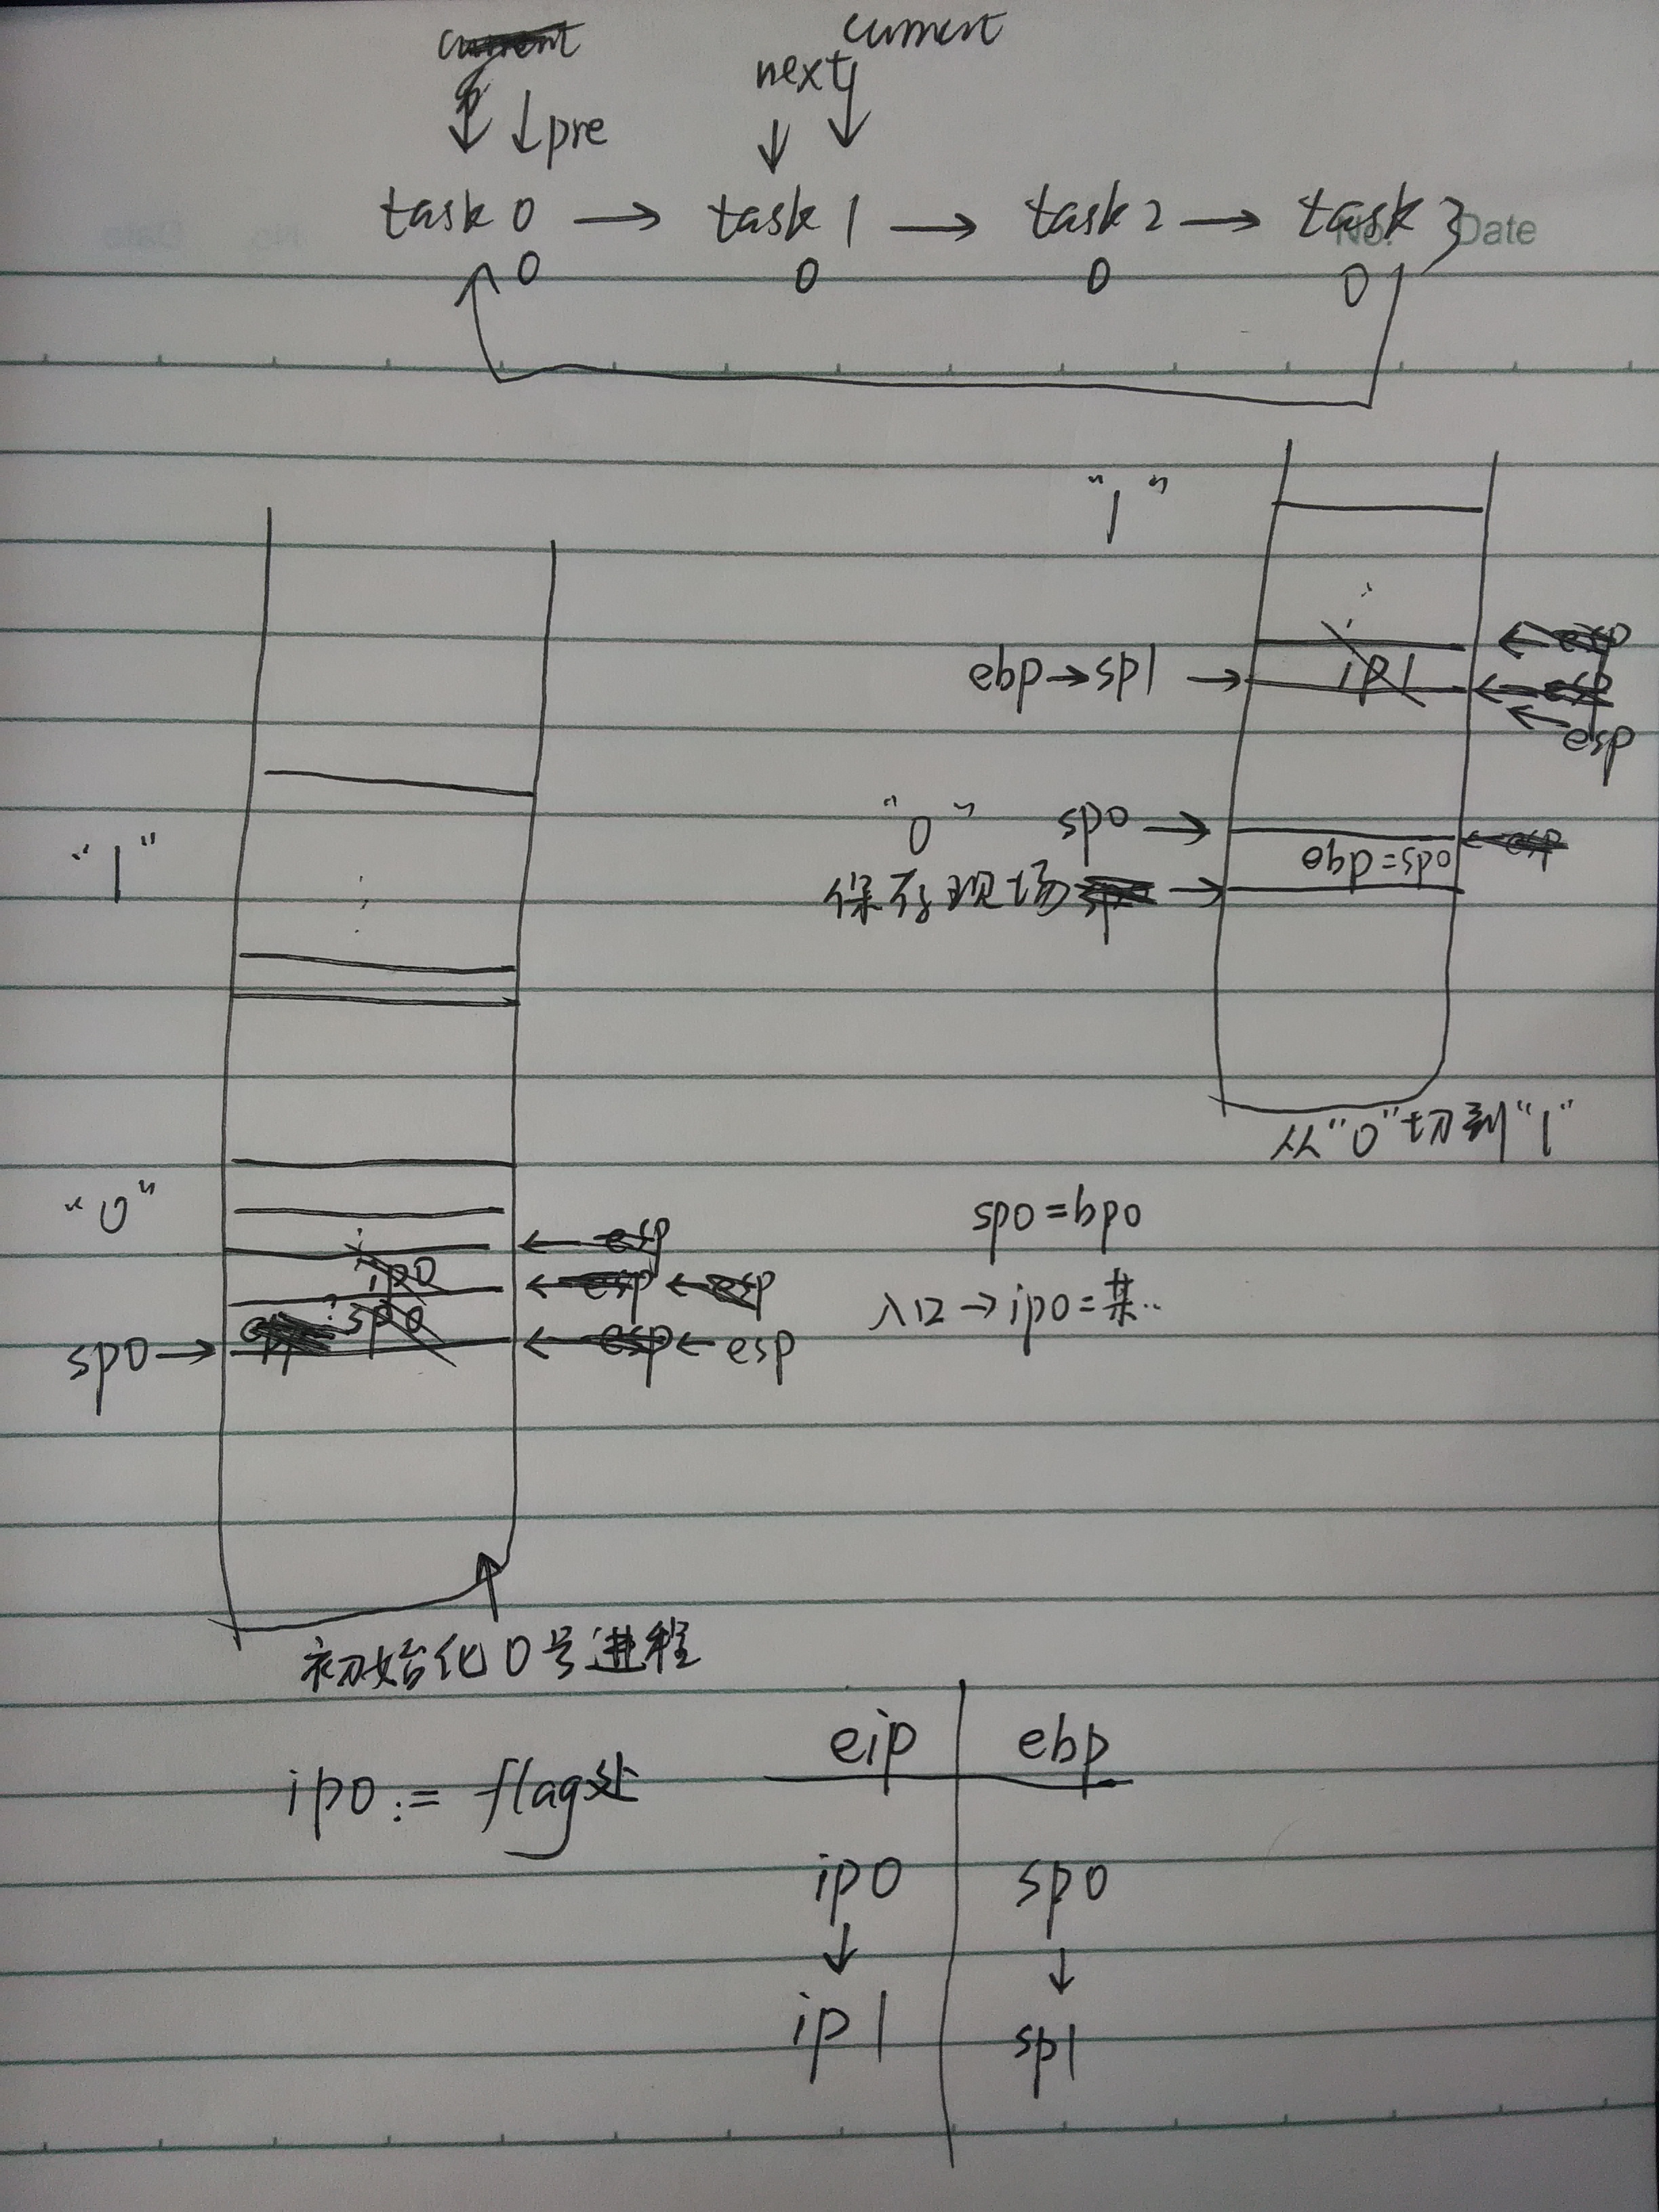 current
current
next
pre
task 0 → task 1 → task 2 → task 3
No. Date
0 0 0 0
"1"
esp
ebp→sp1 → ip1 ← esp
esp
"0" sp0 → ← esp
ebp=sp0
保存现场 →
从"0"切到"1"
"1"
"0"
← esp
ip0 ← esp ← esp
sp0
sp0 → ← esp ← esp
sp0=bp0
入口→ip0=某..
初始化0号进程
ip0:= flag处
eip ebp
ip0 sp0
↓ ↓
ip1 sp1